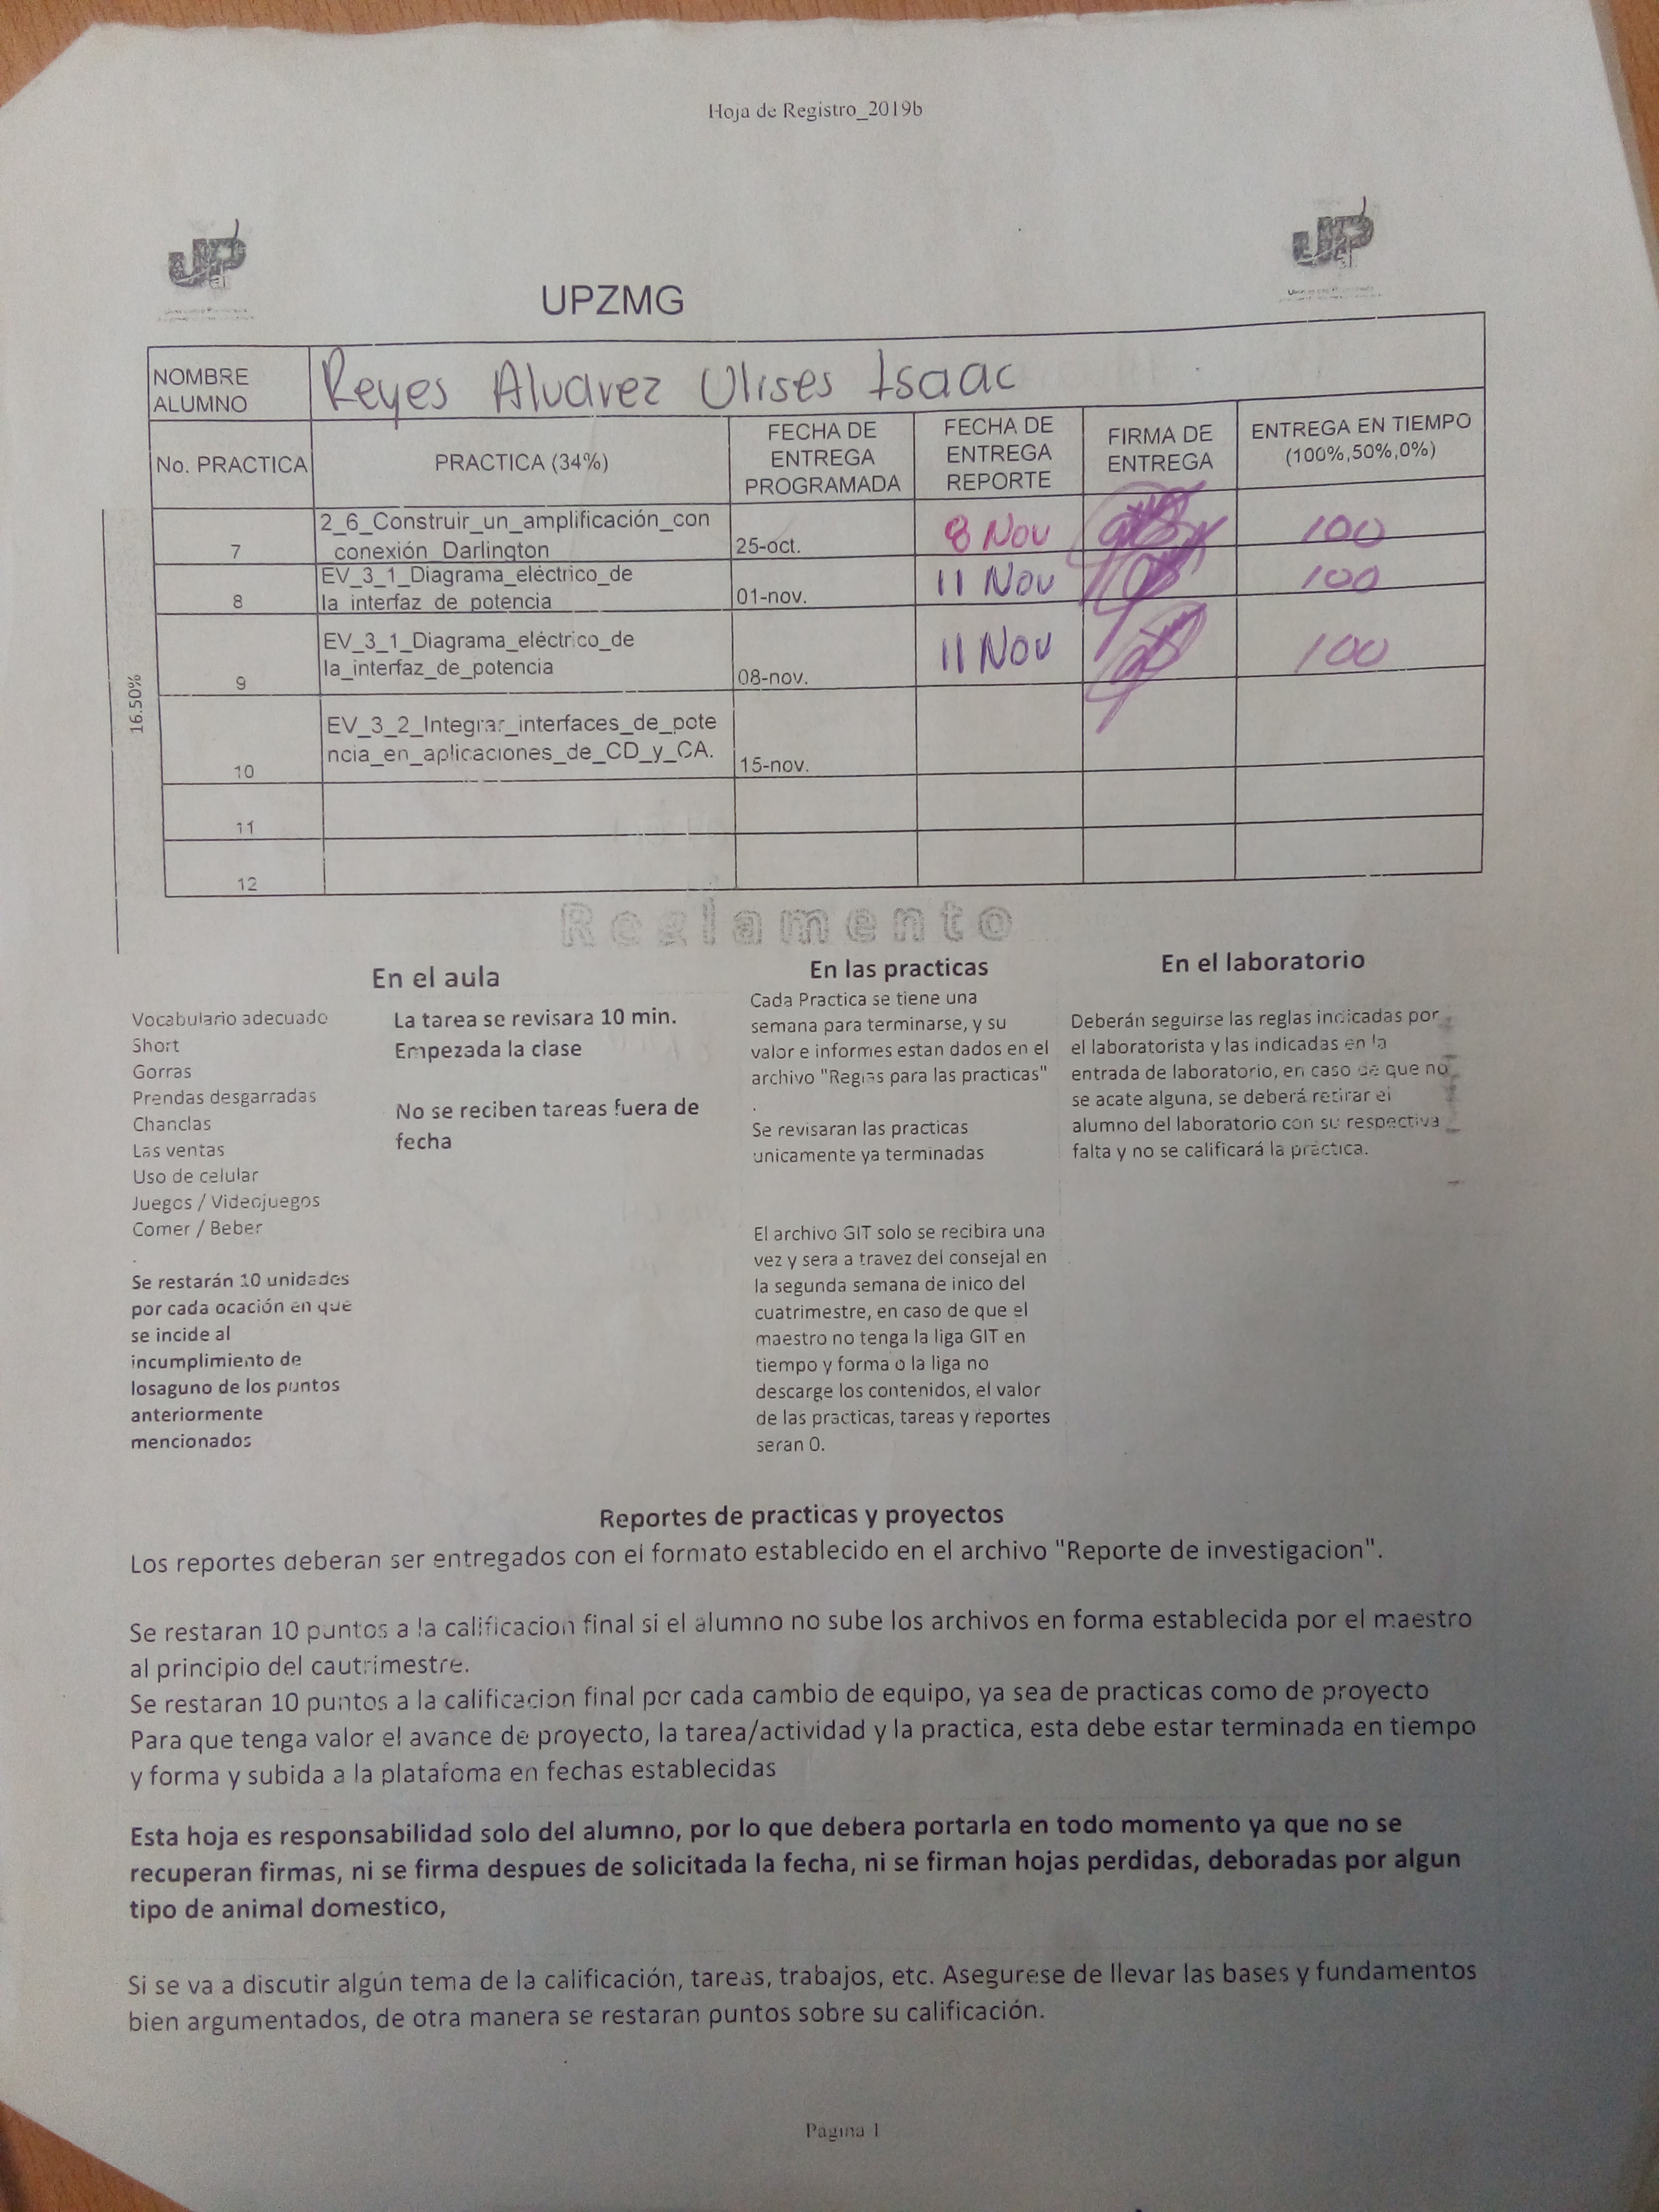 Hoja de Registro_2019b
UPZMG
NOMBRE
ALUMNO
Reyes Alvarez Ulises Isaac
No. PRACTICA
PRACTICA (34%)
FECHA DE
ENTREGA
PROGRAMADA
FECHA DE
ENTREGA
REPORTE
FIRMA DE
ENTREGA
ENTREGA EN TIEMPO
(100%,50%,0%)
16.50%
7
2_6_Construir_un_amplificación_con
_conexión_Darlington
25-oct.
8 Nov
100
8
EV_3_1_Diagrama_eléctrico_de
la_interfaz_de_potencia
01-nov.
11 Nov
100
9
EV_3_1_Diagrama_eléctrico_de
la_interfaz_de_potencia
08-nov.
11 Nov
100
10
EV_3_2_Integrar_interfaces_de_pote
ncia_en_aplicaciones_de_CD_y_CA.
15-nov.
11
12
Reglamento
En el aula
Vocabulario adecuado
Short
Gorras
Prendas desgarradas
Chanclas
Las ventas
Uso de celular
Juegos / Videojuegos
Comer / Beber
.
Se restarán 10 unidades
por cada ocación en que
se incide al
incumplimiento de
losaguno de los puntos
anteriormente
mencionados
La tarea se revisara 10 min.
Empezada la clase
No se reciben tareas fuera de
fecha
En las practicas
Cada Practica se tiene una
semana para terminarse, y su
valor e informes estan dados en el
archivo "Reglas para las practicas"
.
Se revisaran las practicas
unicamente ya terminadas
El archivo GIT solo se recibira una
vez y sera a travez del consejal en
la segunda semana de inico del
cuatrimestre, en caso de que el
maestro no tenga la liga GIT en
tiempo y forma o la liga no
descarge los contenidos, el valor
de las practicas, tareas y reportes
seran 0.
En el laboratorio
Deberán seguirse las reglas indicadas por
el laboratorista y las indicadas en la
entrada de laboratorio, en caso de que no
se acate alguna, se deberá retirar el
alumno del laboratorio con su respectiva
falta y no se calificará la práctica.
Reportes de practicas y proyectos
Los reportes deberan ser entregados con el formato establecido en el archivo "Reporte de investigacion".
Se restaran 10 puntos a la calificacion final si el alumno no sube los archivos en forma establecida por el maestro
al principio del cautrimestre.
Se restaran 10 puntos a la calificacion final por cada cambio de equipo, ya sea de practicas como de proyecto
Para que tenga valor el avance de proyecto, la tarea/actividad y la practica, esta debe estar terminada en tiempo
y forma y subida a la platafoma en fechas establecidas
Esta hoja es responsabilidad solo del alumno, por lo que debera portarla en todo momento ya que no se
recuperan firmas, ni se firma despues de solicitada la fecha, ni se firman hojas perdidas, deboradas por algun
tipo de animal domestico,
Si se va a discutir algún tema de la calificación, tareas, trabajos, etc. Asegurese de llevar las bases y fundamentos
bien argumentados, de otra manera se restaran puntos sobre su calificación.
Página 1